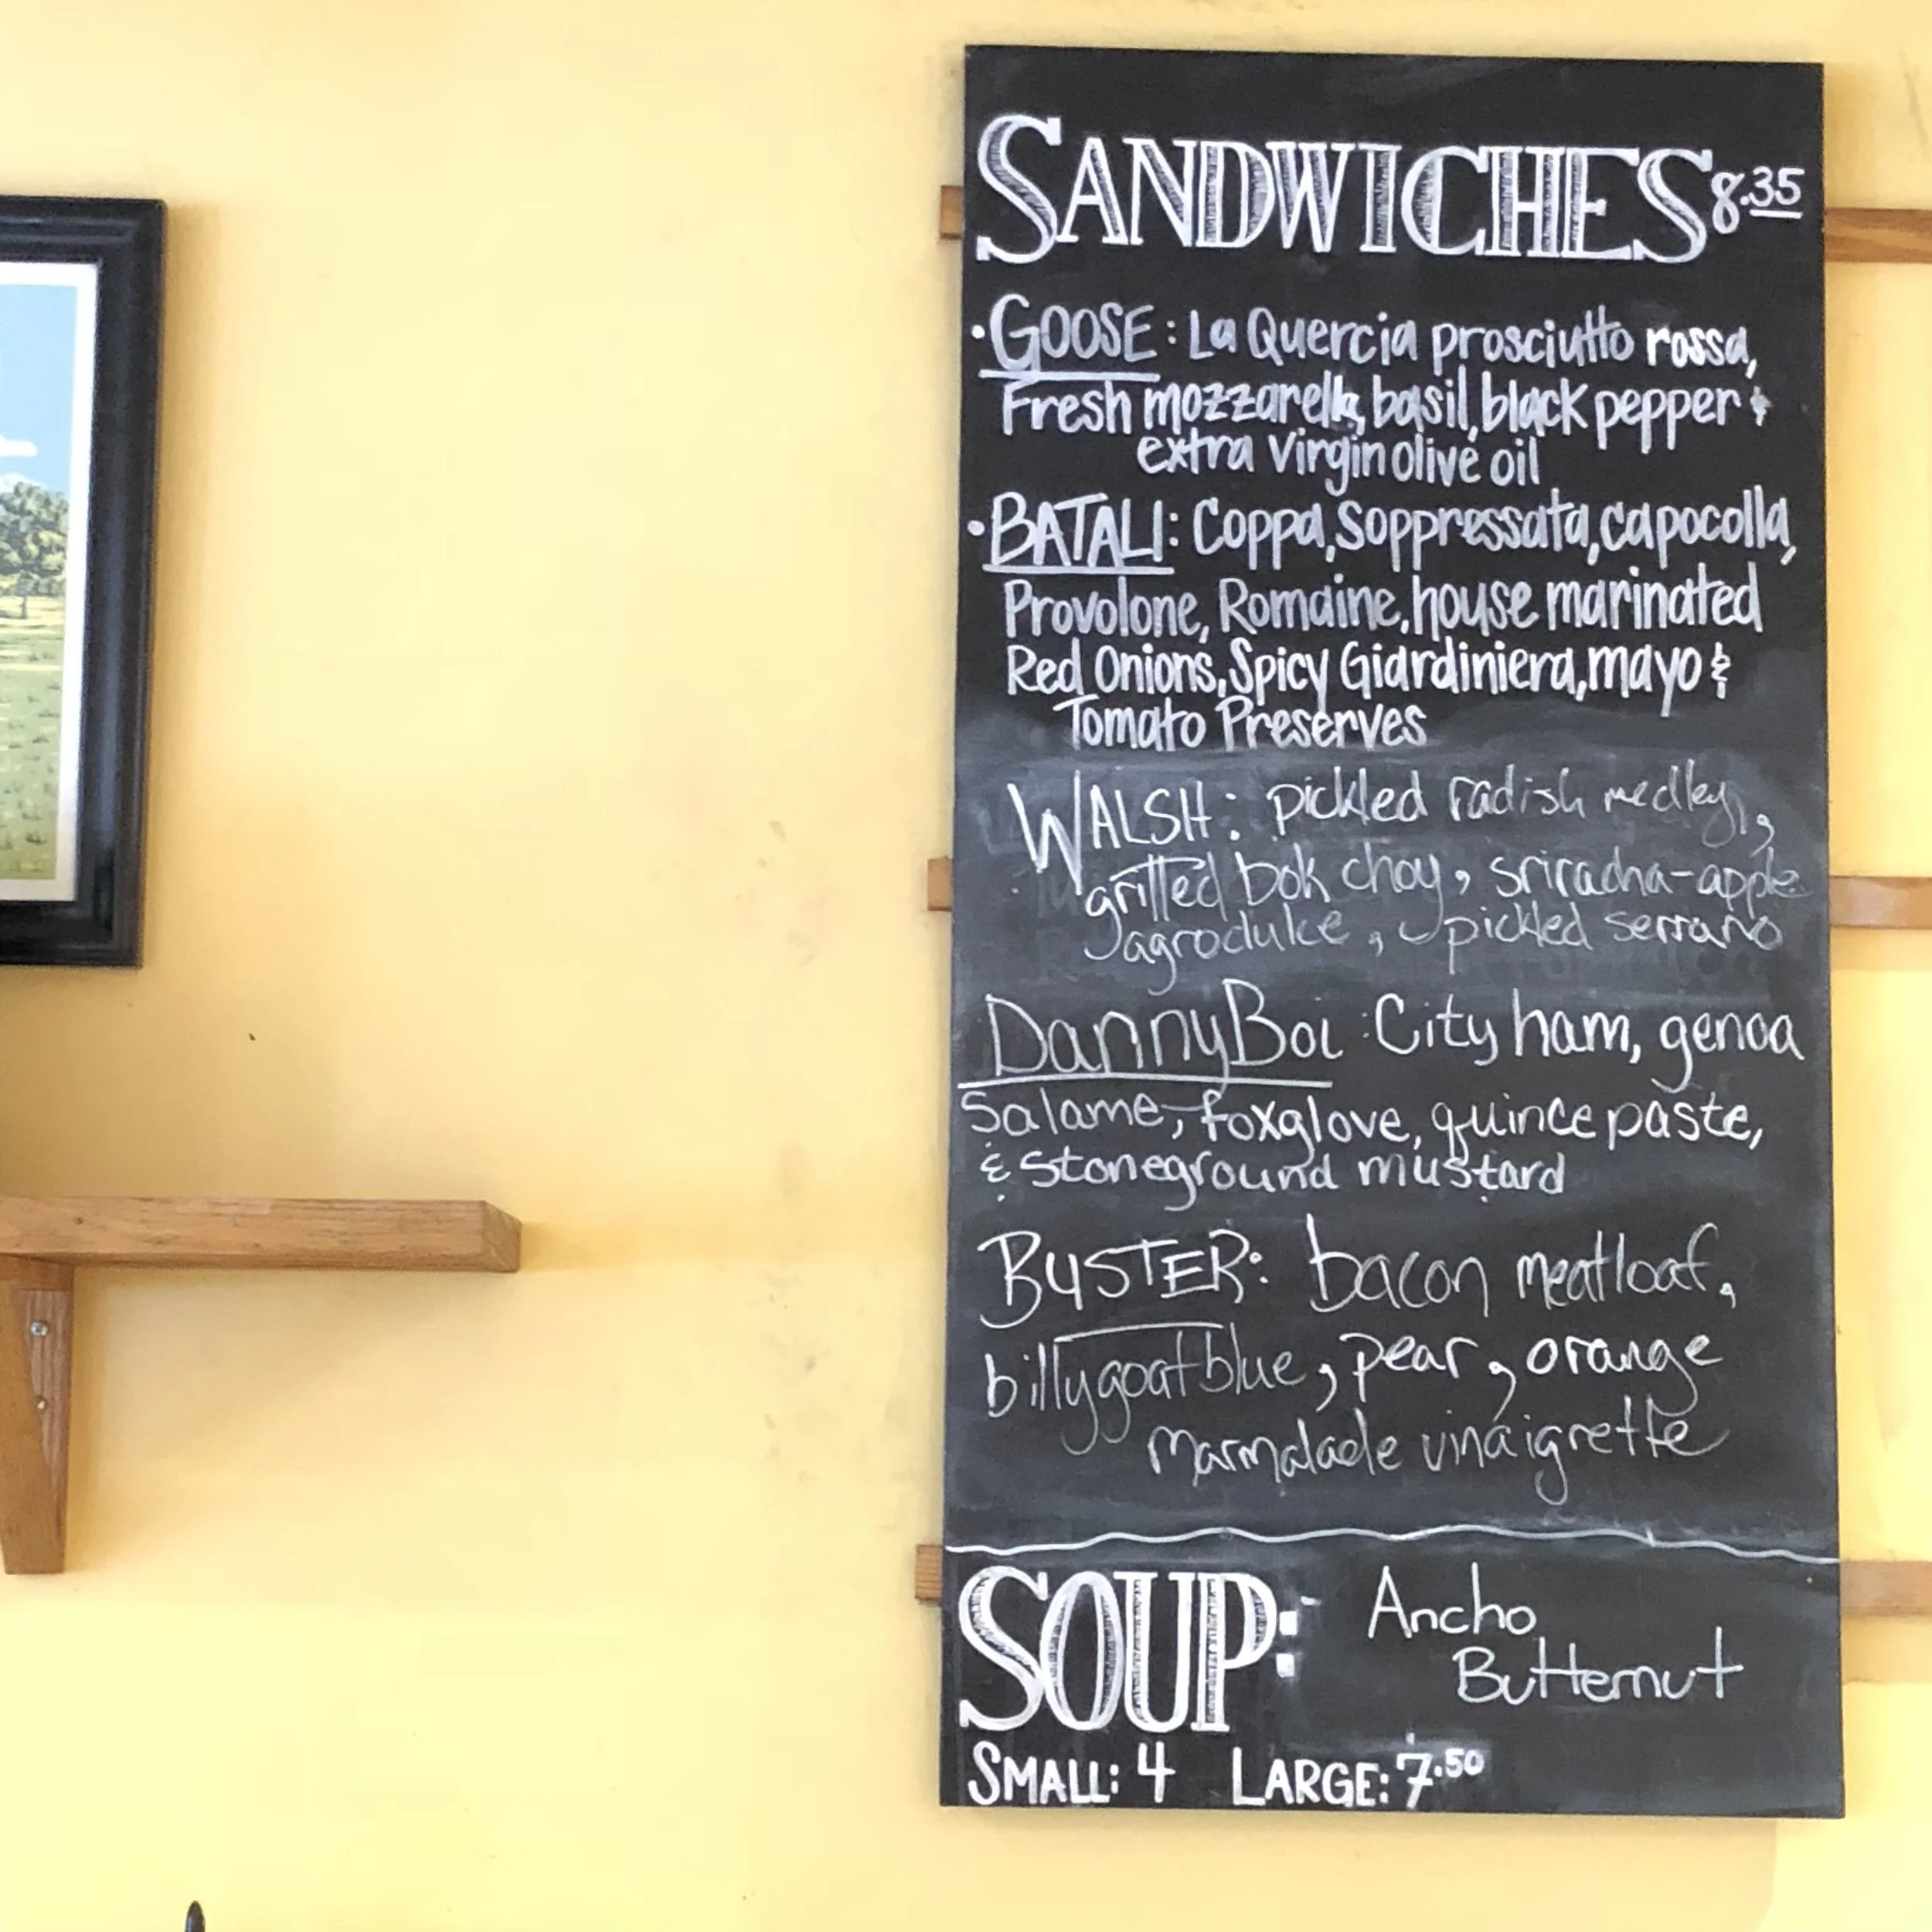 SANDWICHES 8.35
• GOOSE: La Quercia prosciutto rossa,
Fresh mozzarella, basil, black pepper &
extra virgin olive oil
• BATALI: Coppa, Soppressata, capocolla,
Provolone, Romaine, house marinated
Red Onions, Spicy Giardiniera, mayo &
Tomato Preserves
WALSH: pickled radish medley,
grilled bok choy, sriracha-apple
agrodulce, pickled serrano
DannyBoi: City ham, genoa
Salame, foxglove, quince paste,
& Stoneground mustard
BUSTER: bacon meatloaf,
billygoat blue, pear, orange
marmalade vinaigrette
SOUP: Ancho
Butternut
SMALL: 4 LARGE: 7.50